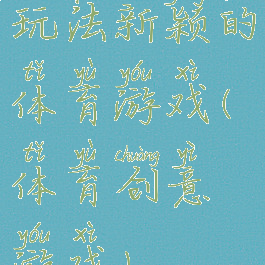 玩法新颖的
tǐ yù yóu xì
体育游戏(
tǐ yù chuàng yì
体育创意
yóu xì
游戏)